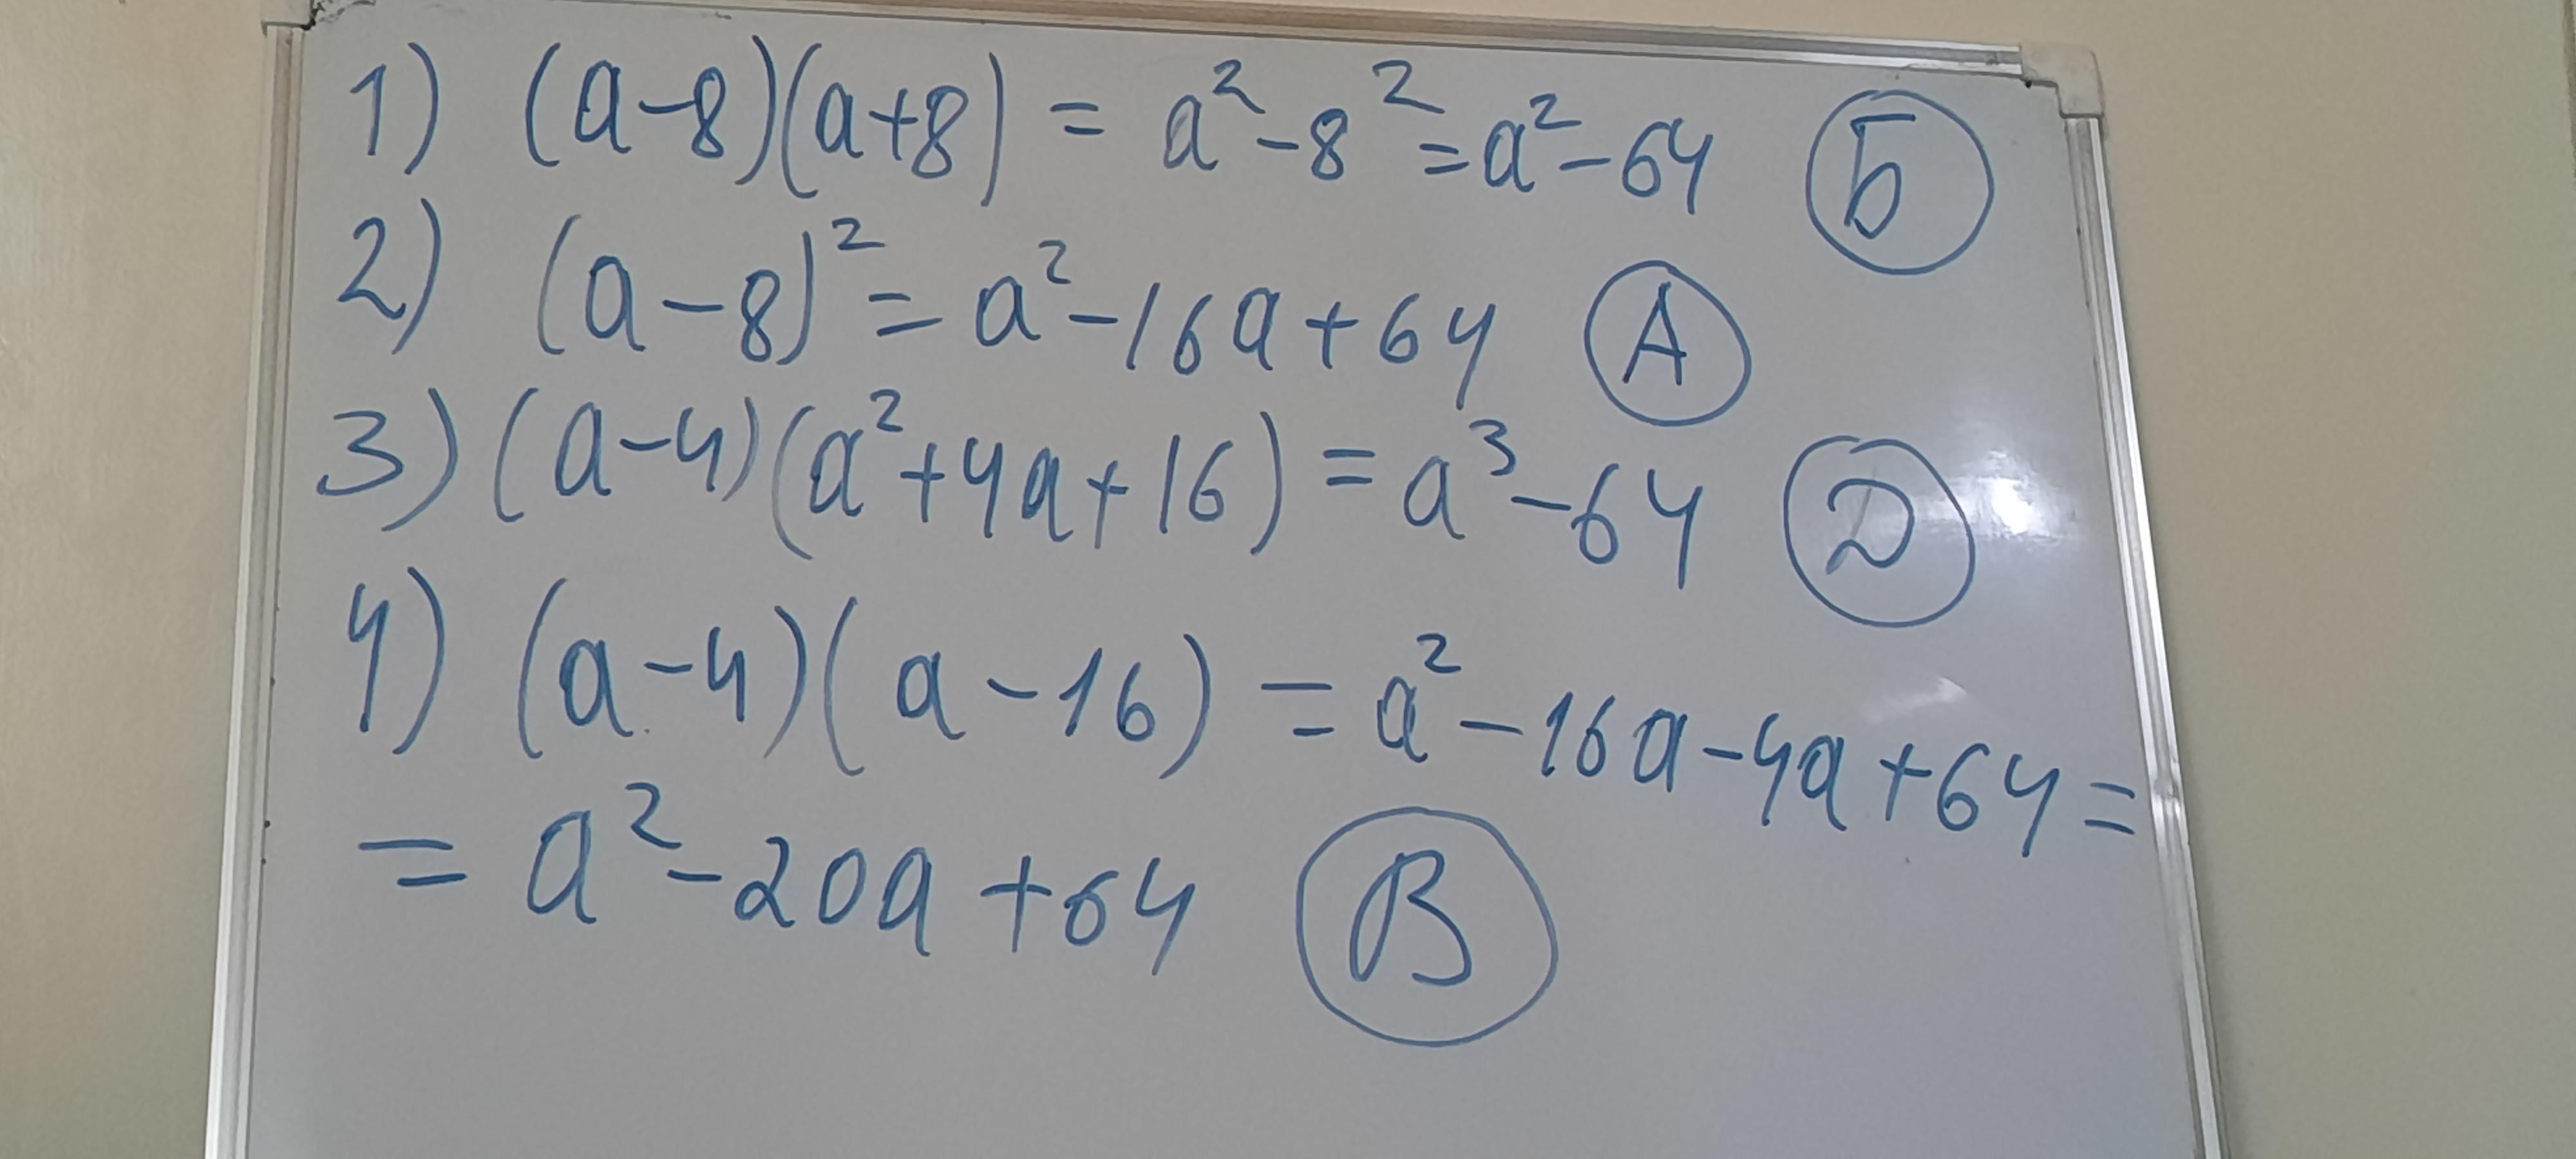 1) (a-8)(a+8) = a²-8²=a²-64 Б
2) (a-8)²=a²-16a+64 А
3) (a-4)(a²+4a+16)=a³-64 Д
4) (a-4)(a-16)=a²-16a-4a+64=
=a²-20a+64 В